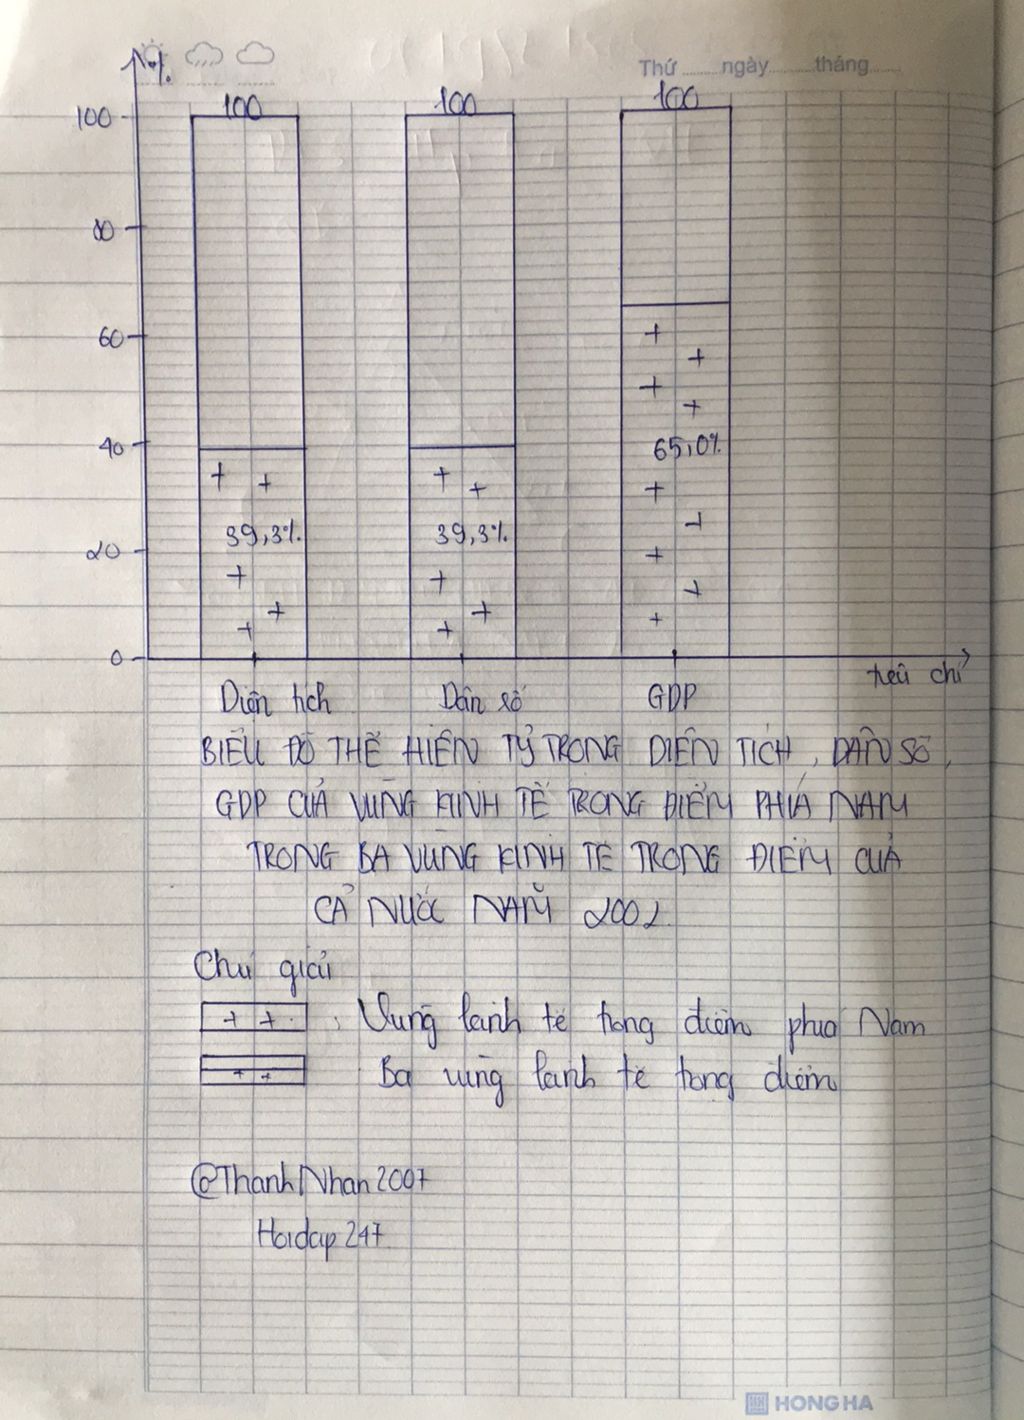 %
Thứ ngày tháng
100 100 100
100
80
60
40
65,0%
39,3% 39,3%
20
0
tiêu chí
Diện tích Dân số GDP
BIỂU ĐỒ THỂ HIỆN TỶ TRỌNG DIỆN TÍCH, DÂN SỐ,
GDP CỦA VÙNG KINH TẾ TRỌNG ĐIỂM PHÍA NAM
TRONG BA VÙNG KINH TẾ TRỌNG ĐIỂM CỦA
CẢ NƯỚC NĂM 2002
Chú giải
: Vùng kinh tế trọng điểm phía Nam
Ba vùng kinh tế trọng điểm
@ThanhNhan2007
Hoidap247
HONG HA